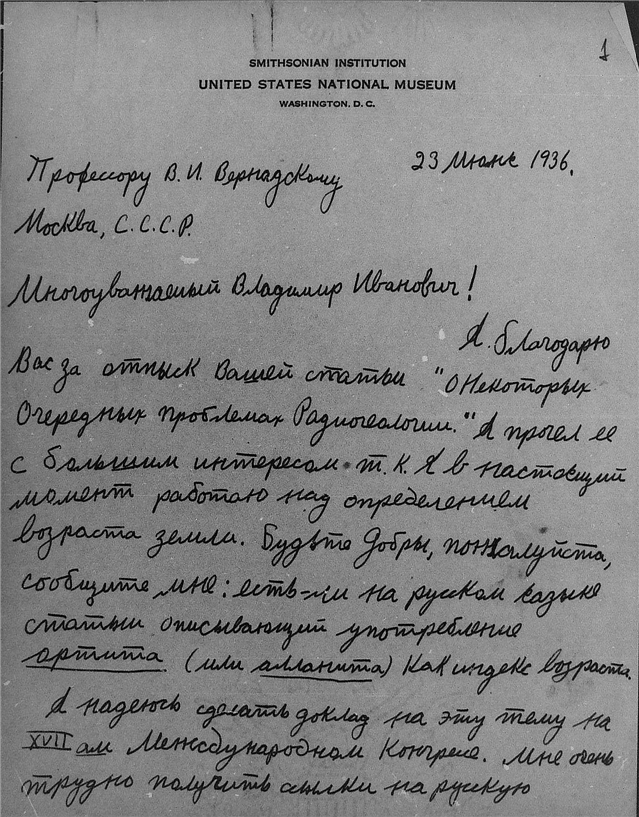 1
SMITHSONIAN INSTITUTION
UNITED STATES NATIONAL MUSEUM
WASHINGTON, D. C.
23 Июня 1936.
Профессору В. И. Вернадскому
Москва, С.С.С.Р.
Многоуважаемый Владимир Иванович!
Я благодарю
Вас за отписк Вашей статьи "О Некоторых
Очередных проблемах Радиогеологии." Я прочел ее
с большим интересом т.К. Я в настоящий
момент работаю над определением
возраста земли. Будьте Добры, пожалуйста,
сообщите мне: есть-ли на русском языке
статьи описывающий употребление
ортита (или алланита) Как индекс возраста.
Я надеюсь сделать доклад на эту тему на
XVII ом Международном Конгресе. Мне очень
трудно получить ссылки на русскую